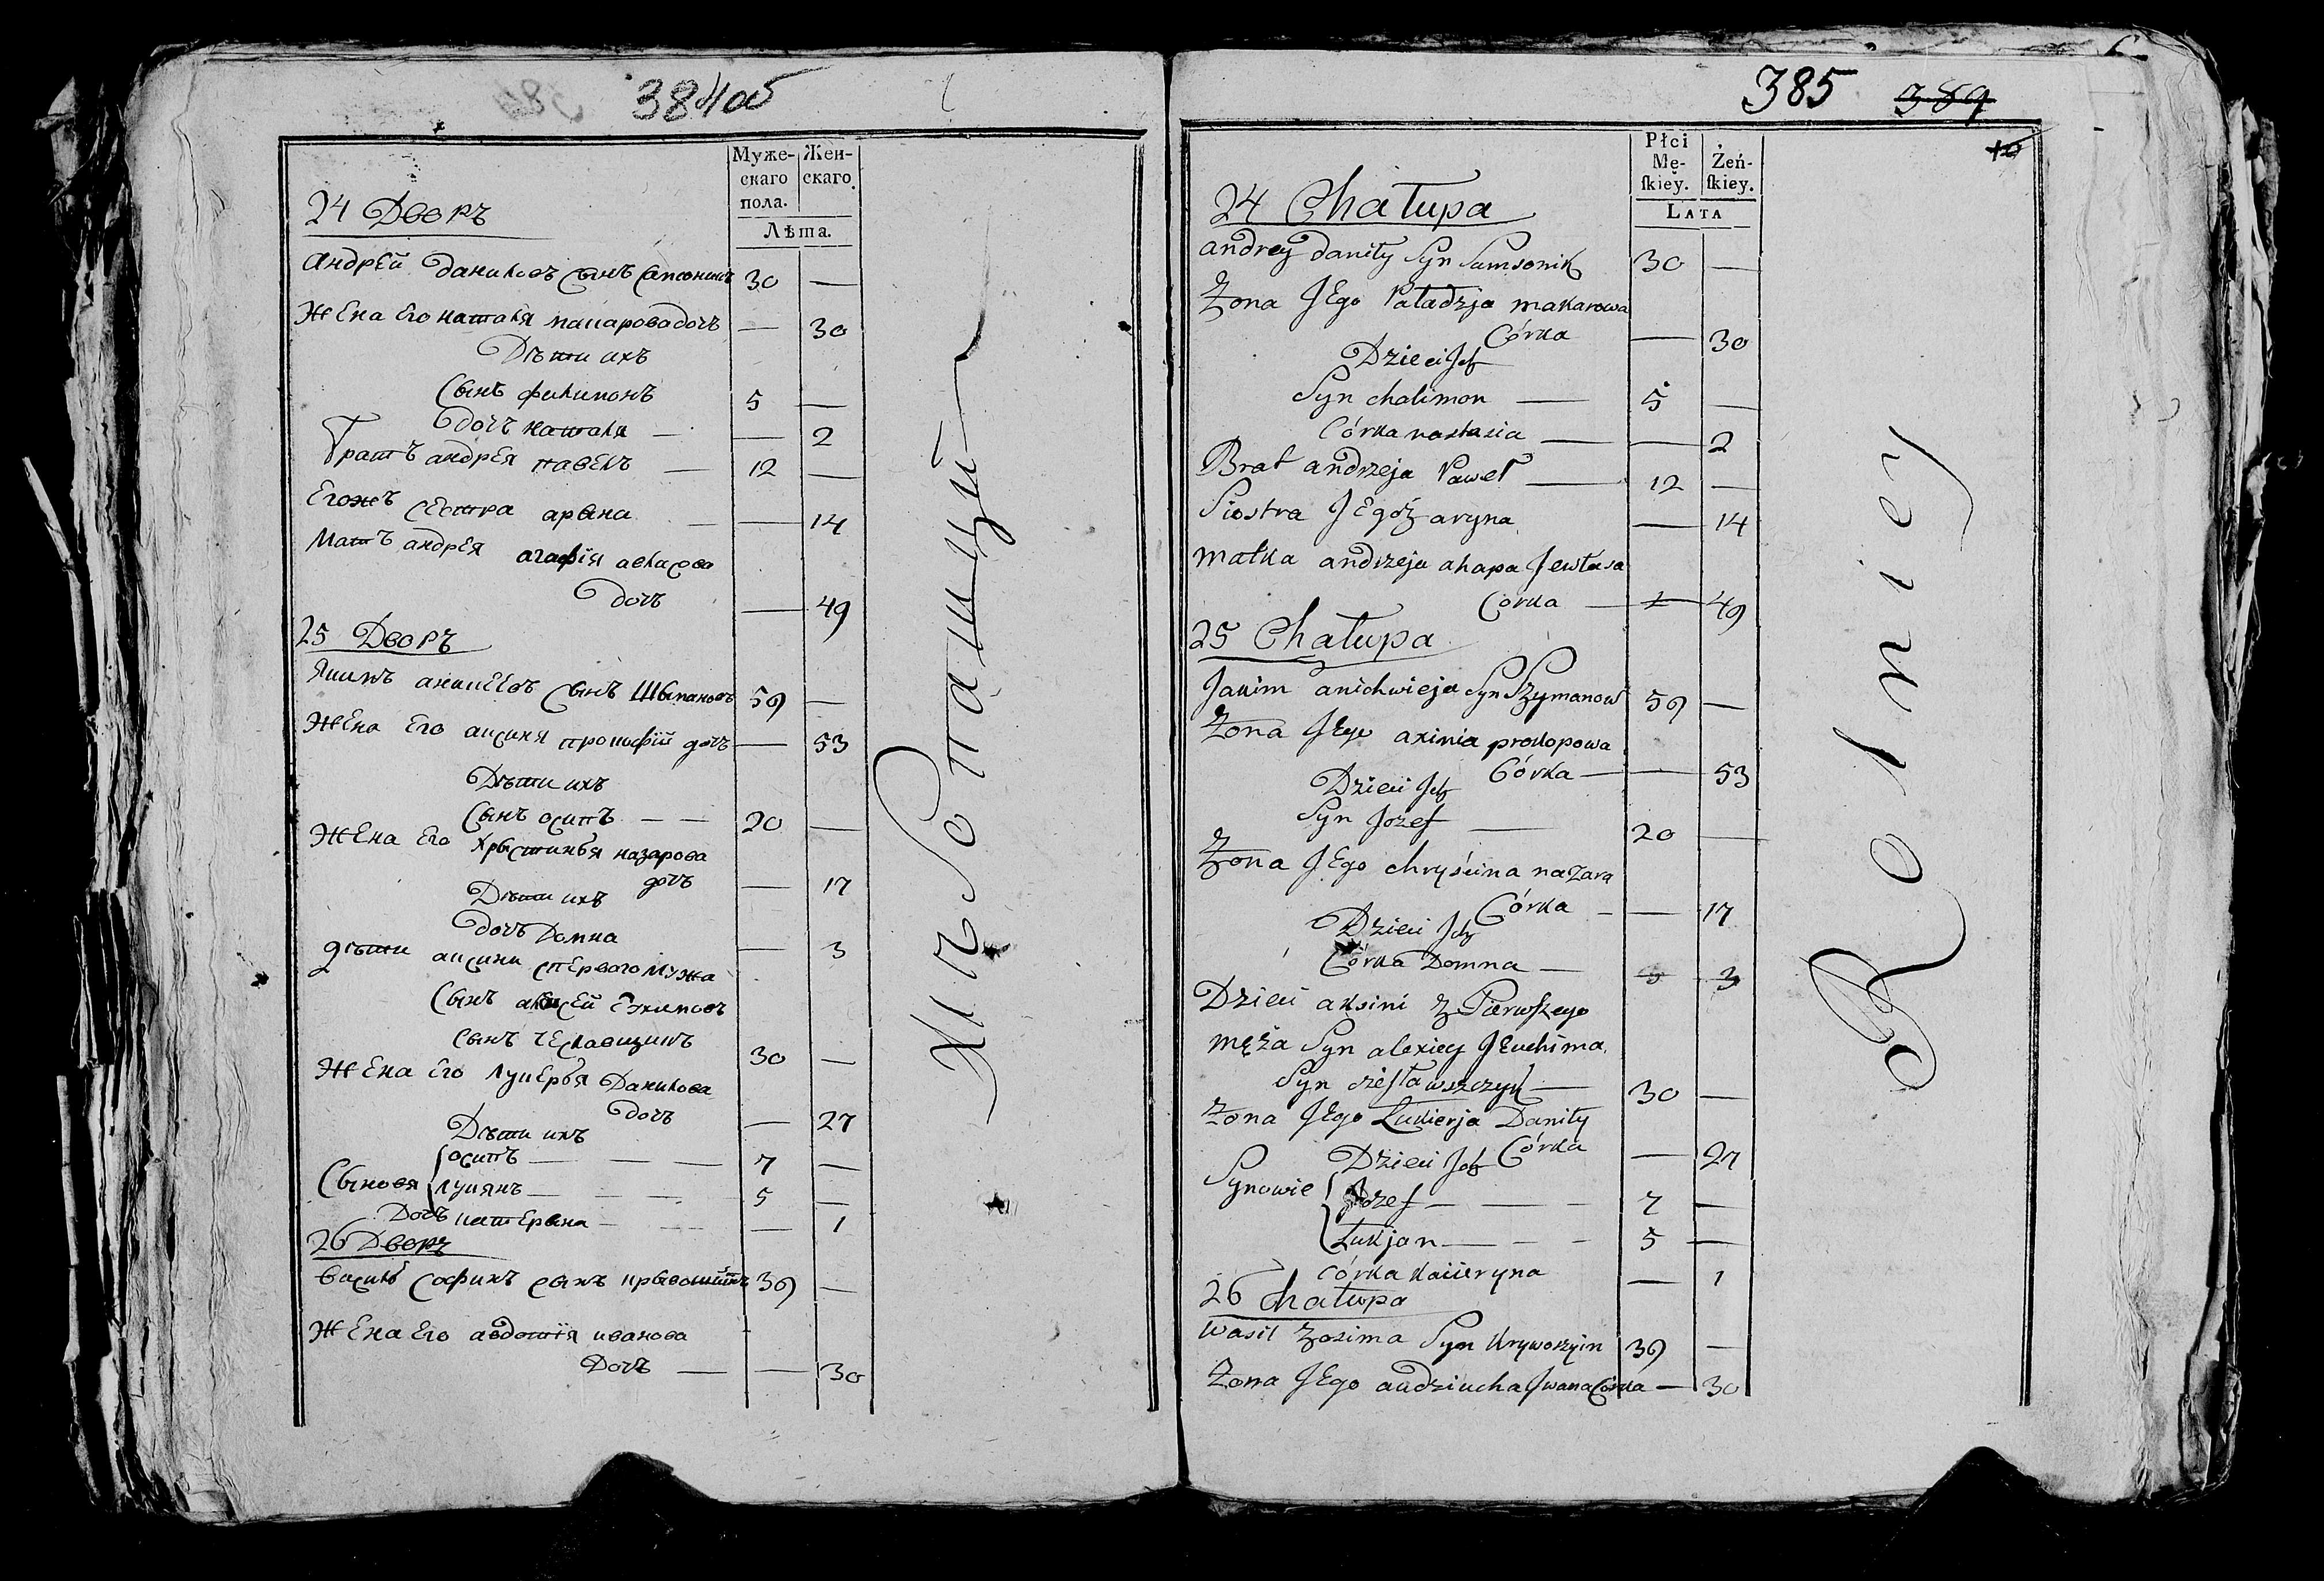 384об
Муже-
скаго
пола.
Жен-
скаго.
Лѣта.
24 Дворъ
Андрей Даниловъ сынъ Самсоникъ 30 —
Жена его Наталя Макарова дочъ — 30
Дѣти ихъ
Сынъ Филимонъ 5 —
дочъ Наталя — — 2
Братъ Андрея Павелъ — 12 —
Егожъ сестра Арына — — 14
Мать Андрея Агафія
дочъ — 49
25 Дворъ
Якимъ сынъ 59 —
Жена его Аксиня Прокофій дочъ — 53
Дѣти ихъ
Сынъ Осипъ — — 20 —
Жена его Хрыстинья Назарова
дочъ — 17
Дѣти ихъ
дочъ Домна — 3
Дѣти Аксини с первого мужа
Сынъ Алексей
сынъ 30 —
Жена его Лукерья Данилова
дочъ — 27
Дѣти ихъ
Сыновя { Осипъ — — — 7 —
Лукянъ — — — 5 —
Дочъ Катерына — — — 1
26 Дворъ
сынъ 39 —
Жена его Авдотія Иванова
Дочъ — — 30
Крестіянъ
385 389
10
Płci
Mę-
ſkiey.
Żeń-
ſkiey.
LATA
24 Chałupa
andrey daniły Syn Samsonik 30 —
Żona JEgo Natadzja makarowa
Córka — 30
Dzieci Jch
Syn chalimon — 5 —
Córka nastazia — — 2
Brat andrzeja Paweł — 12 —
Siostra JEgóż aryna — 14
matka andrzeja ahapa Jewłasa
Corka — 49
25 Chałupa
Jakim anichwieja Syn Szymanow 59 —
Żona JEgo axinia prokopowa
Córka — — 53
Dzieci Jch
Syn Jozef — 20 —
Żona JEgo chryścina nazara
Córka — — 17
Dzieci Jch
Córka Domna — 3
Dzieci aksini z Pierwſzego
męża Syn alexiey JEuchima
Syn 30 —
Żona JEgo Łukierja Daniły
Dzieci Jch Córka — 27
Synowie { Jozef — — — 7 —
Łukjan — — — 5 —
córka Kacieryna — 1
26 Chałupa
Wasil Zosima Syn Krywoszyin 39 —
Żona JEgo audziucha Jwana Córka — 30